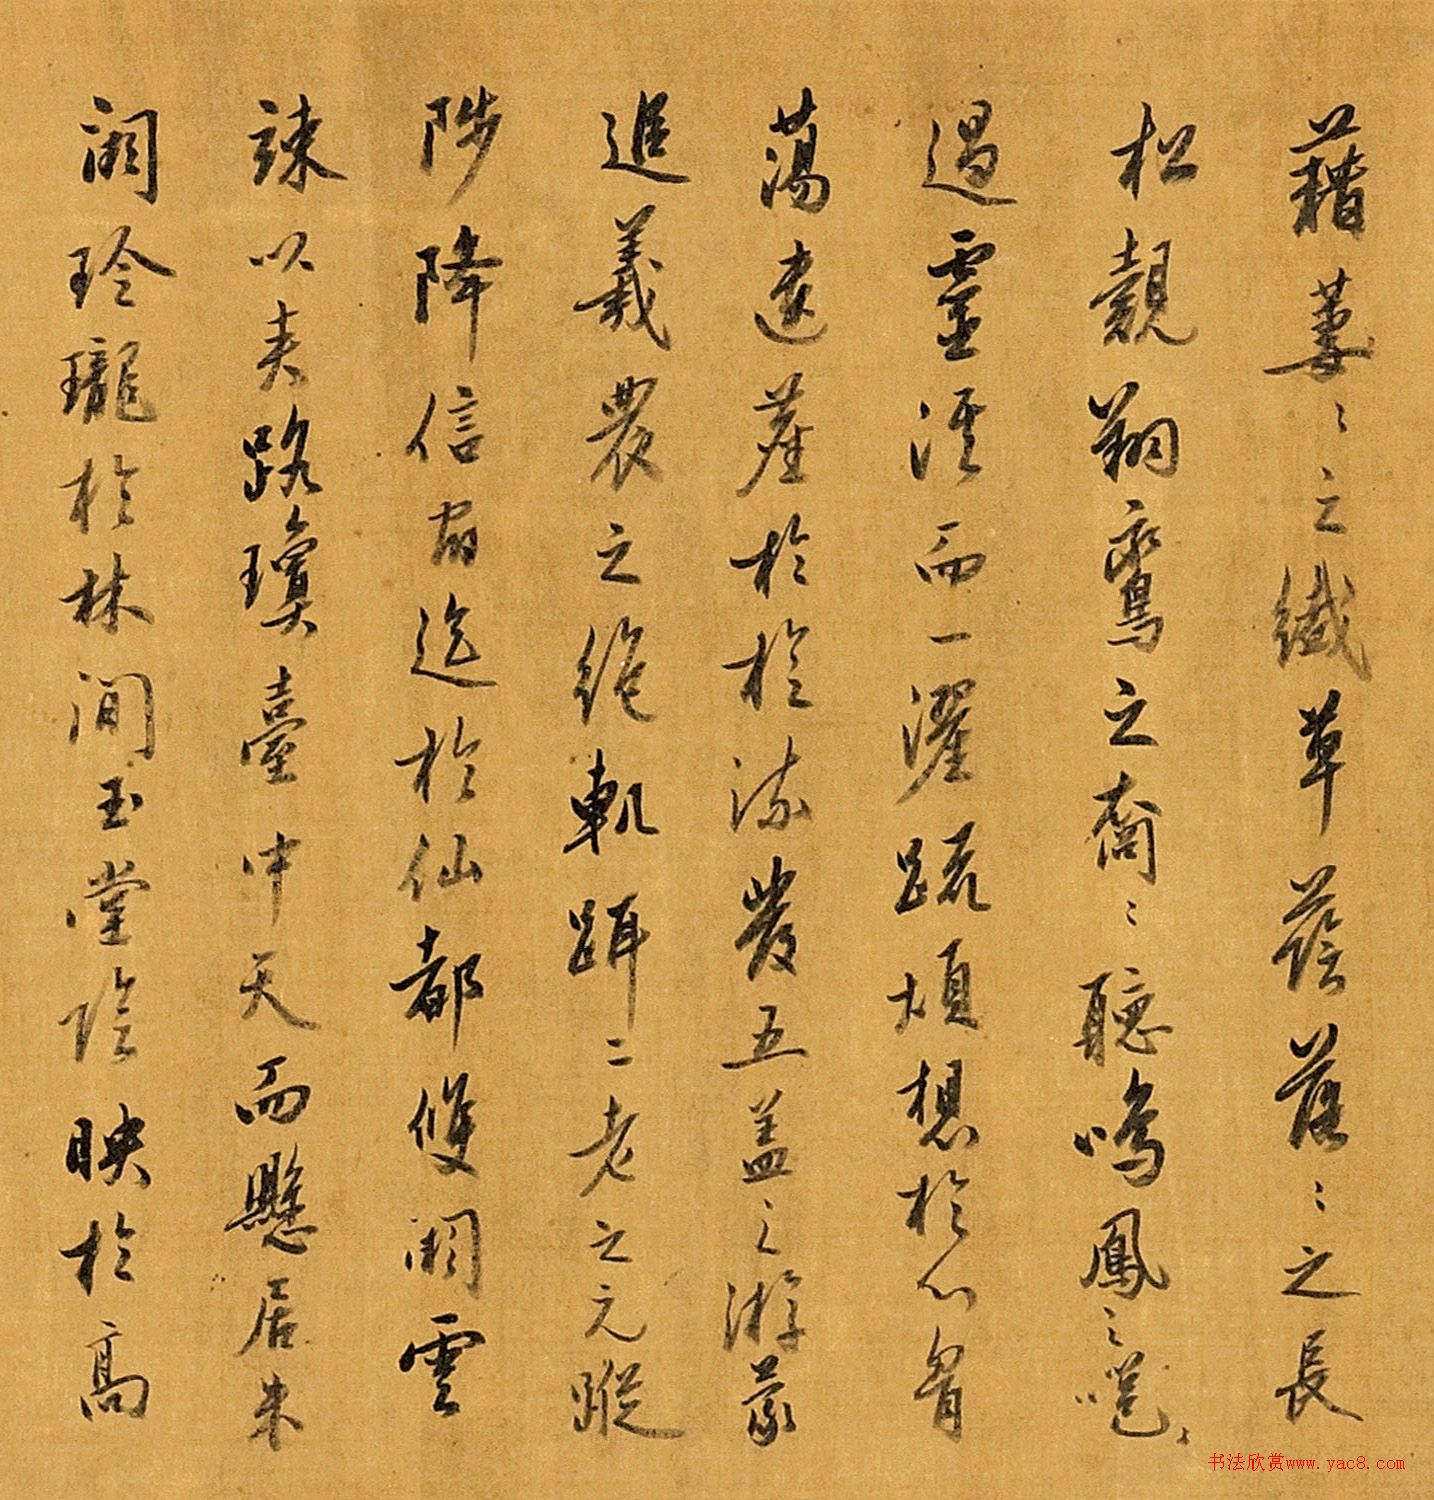 藉萋〻之纖草蔭落〻之長
松覿翔鸞之裔〻聽鳴鳳之嗈〻
過靈溪而一濯疏煩想於心胷
蕩遺塵於旋流發五蓋之游蒙
追羲農之絶軌躡二老之元蹤
陟降信宿迄於仙都雙闕雲
竦以夾路瓊臺中天而懸居朱
闕玲瓏於林間玉堂陰映於高
书法欣赏www.yac8.com